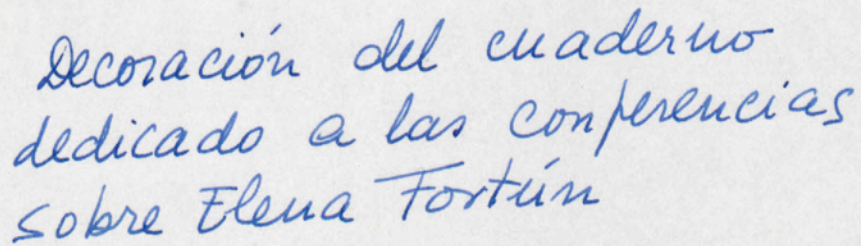 Decoración del cuaderno
dedicado a las conferencias
sobre Elena Fortún